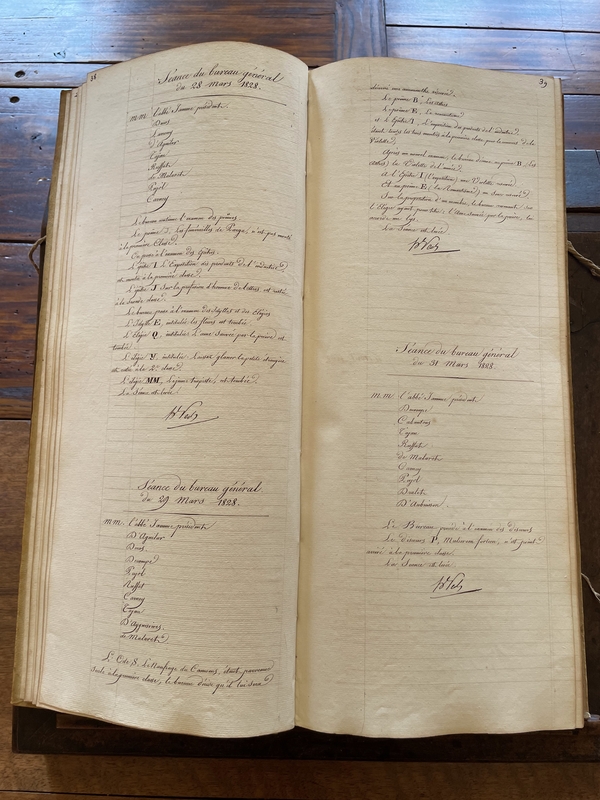 38
Séance du bureau général
du 28 mars 1828.
MM. l'abbé Jamme président
Duis
Lamey
d'Aguilar
Cazan
Ruffat
de Malaret
Pujol
Carney
Le bureau continue l'examen des poëmes.
Le poëme J. Les funérailles de n'est pas monté
à la première Classe.
On passe à l'examen des Epitres.
L'épitre I. L'Exposition des produits de l'industrie
est montée à la première classe.
L'épitre J Sur la profession d'homme de lettres, est restée
à la seconde classe.
Le bureau passe à l'examen des Idylles et des Elégies
L'Idylle E, intitulée les fleurs est tombée.
L'élégie Q, intitulée sauvée par la prière est
tombée.
L'élégie Y intitulée laissez glaner la petite
est restée à la 2e classe.
L'élégie MM, la jeune est tombée.
La séance est levée.
Séance du bureau général.
du 29 mars 1828.
MM. l'abbé Jamme président
D'Aguilar
Duis
Decampe
Pujol
Ruffat
Carney
Cazan
de Malaret
L'Ode S. Le Naufrage du Camoens, étant parvenue
seule à la première classe, le bureau décide qu'il lui sera
39
décerné une amaranthe réservée.
Le poëme B, Les astres
Le poëme E,
et l'épitre I, L'exposition des produits de l'industrie
étant toutes les trois montées à la première classe pour le concours de la
Violette,
Après un nouvel examen, le bureau décerne au poëme B (les
astres) la Violette de l'année.
A l'Epitre I (l'exposition) une Violette réservée
Et au poëme E un Souci réservé
Sur la proposition d'un membre, le bureau revenant sur
l'Elégie ayant pour titre sauvée par la prière, lui
accorde un lys.
La Séance est levée.
Séance du bureau général
du 31 Mars 1828
MM. l'abbé Jamme président
Decampe
Cabantous
Cazan
Ruffat
de Malaret
Carney
Pujol
D'Aubuisson.
Le Bureau procède à l'examen des discours
Le discours P, n'est point
arrivé à la première classe.
La Séance est levée.